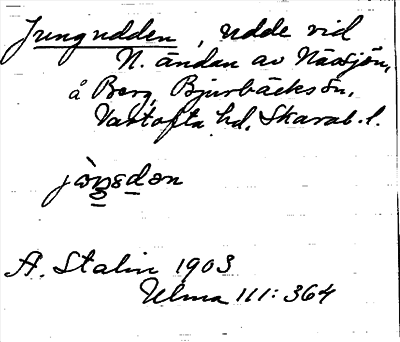 Jungudden, udde vid
N. ändan av Näsjön,
å Berg, Bjurbäcks sn,
Vartofta hd, Skarab. l.
A. Stalin 1903
Ulma 111: 364